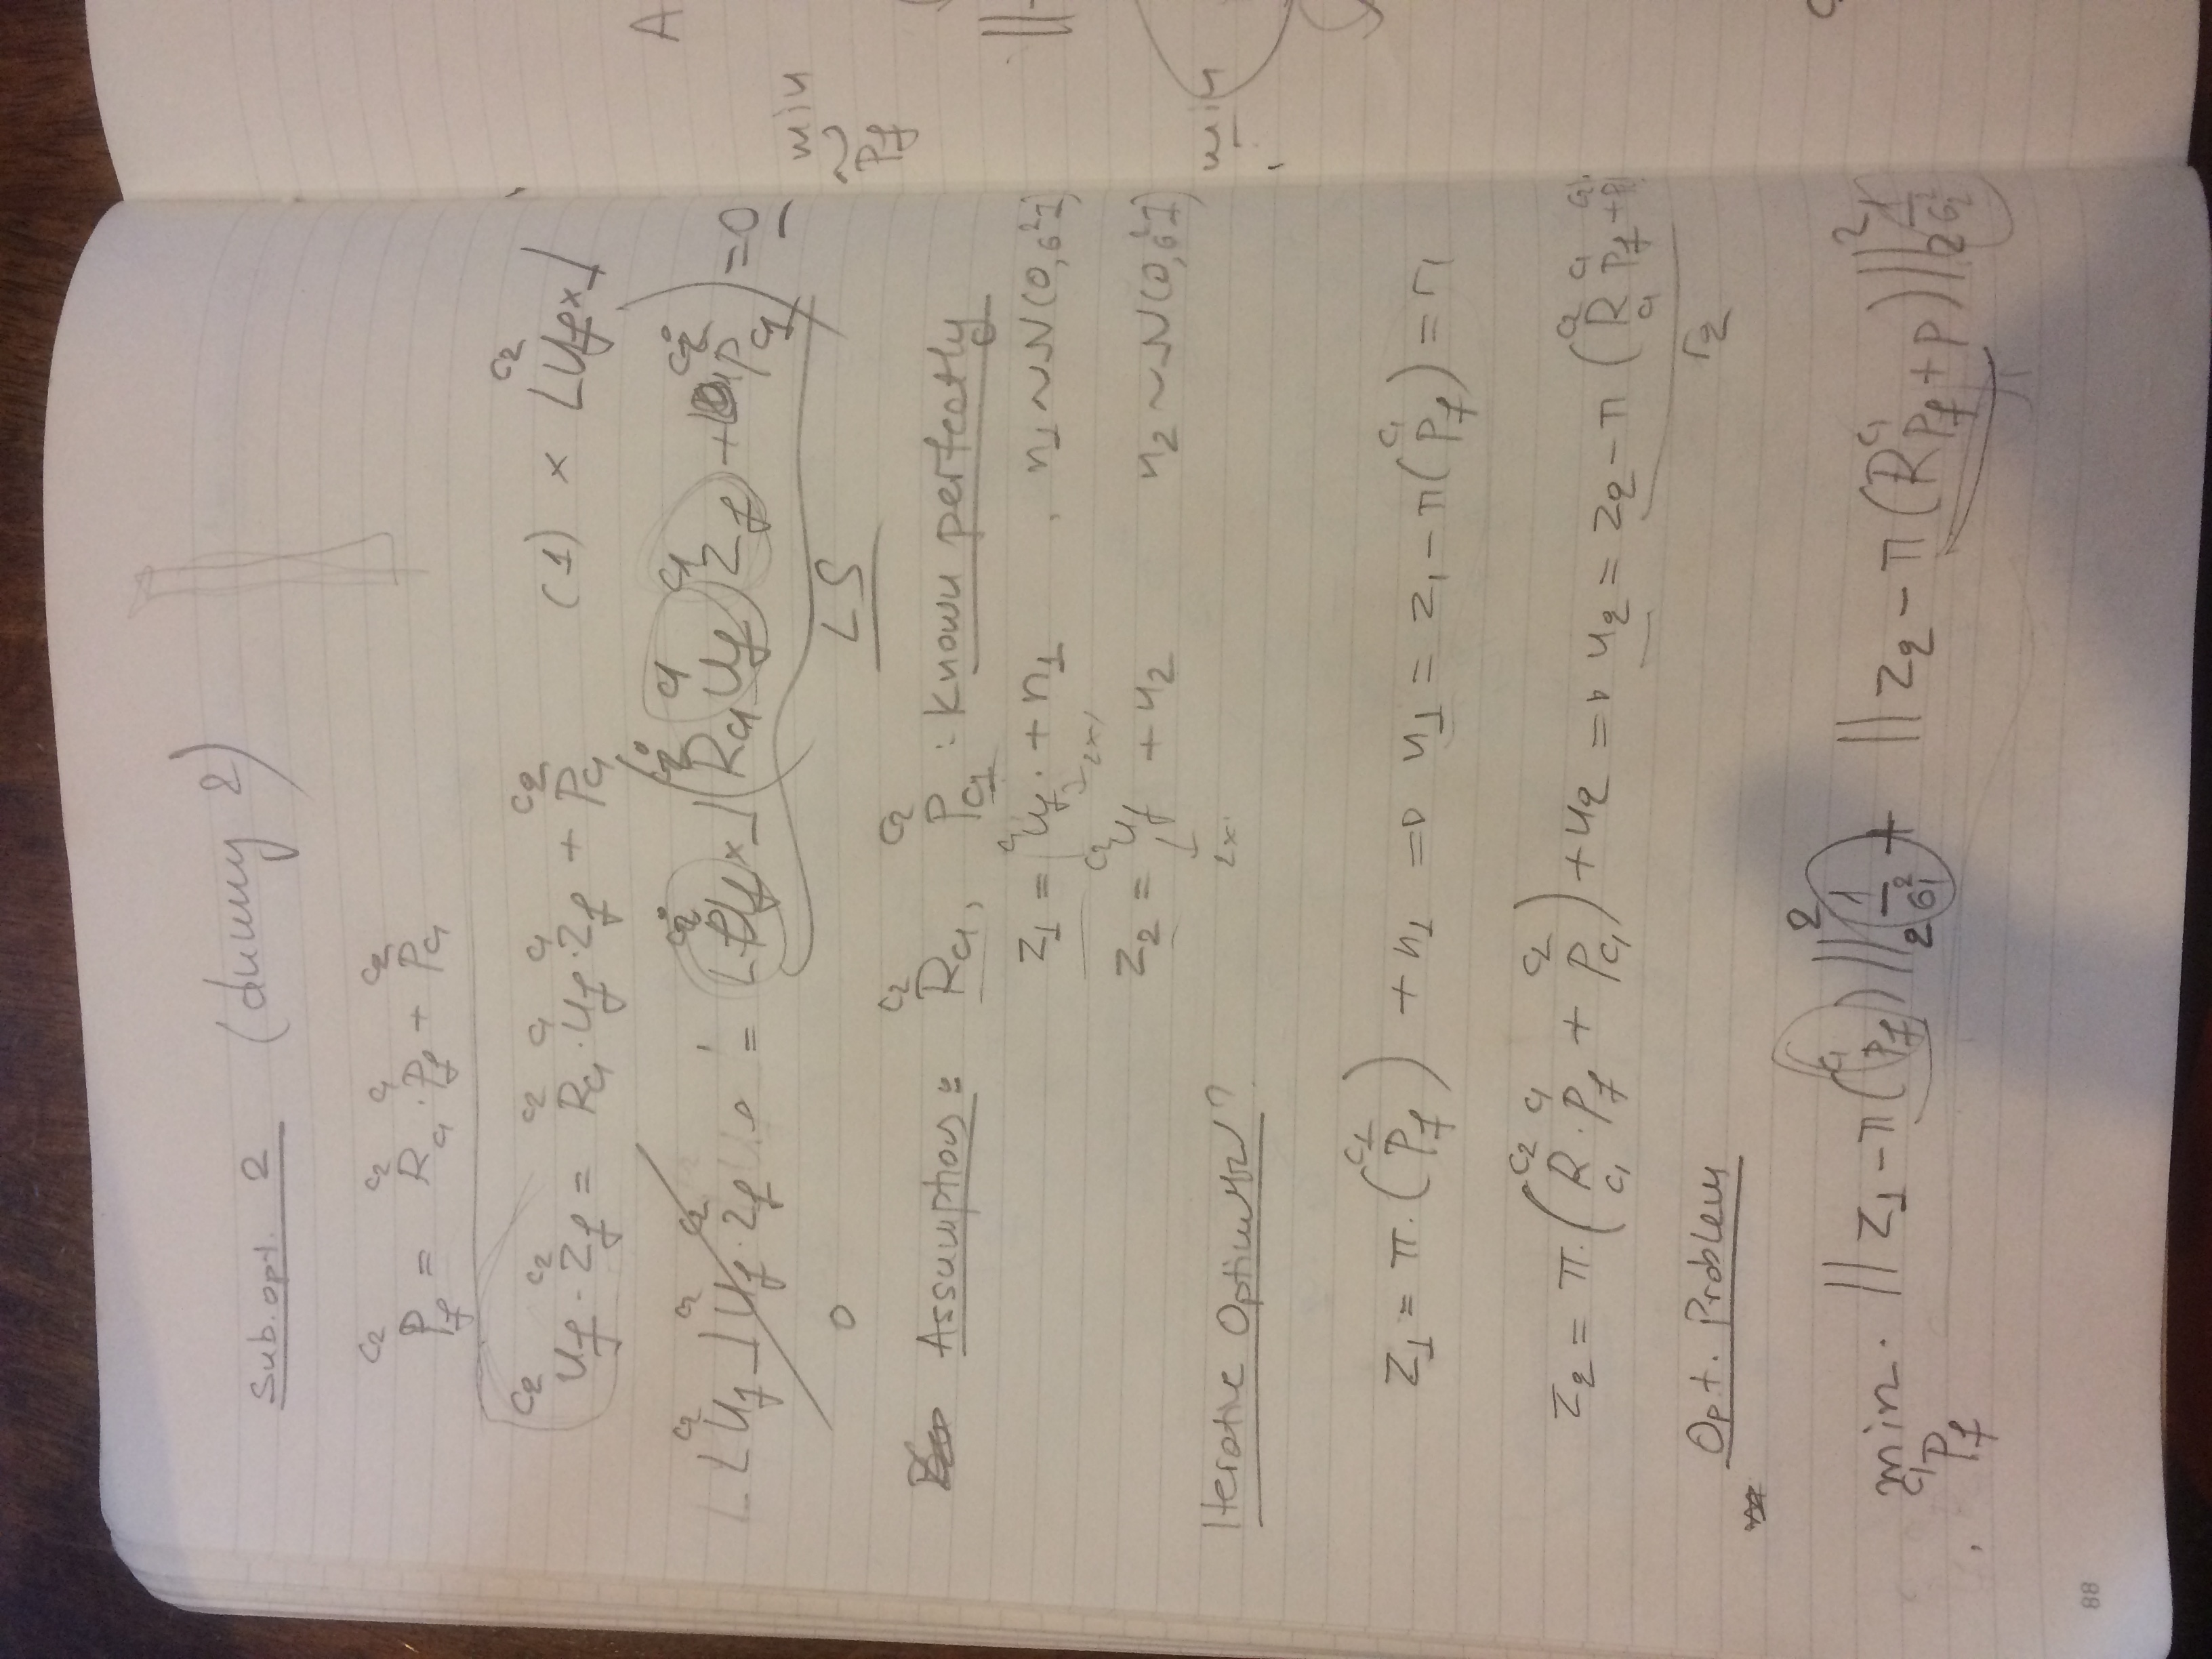 Sub.opt. 2 (dummy 2)
C2 P_f = C2 R_C1 · C1 P_f + C2 P_C1
C2 U_f · C2 Z_f = C2 R_C1 · C1 U_f · C1 Z_f + C2 P_C1 (1) × ⌊C2 U_f ×⌋
⌊C2 U_f⌋ C2 U_f · C2 Z_f = ⌊Ci U_f ×⌋ (Ci R_C1 C1 U_f C1 Z_f + Ci P_C1) = 0
0
LS
Assumptions: C2 R_C1, C2 P_C1 : Known perfectly
z_1 = C1 U_f + n_1 , n_1 ~ N(0, σ²I)
2x1
z_2 = C2 U_f + n_2 n_2 ~ N(0, σ²I)
2x1
Iterative Optimizer?
z_1 = π · (C1 P_f) + n_1 => n_1 = z_1 - π(C1 P_f) = r_1
z_2 = π · (C2 R_C1 · C1 P_f + C2 P_C1) + n_2 => n_2 = z_2 - π (C2 R_C1 C1 P_f +
r_2
Opt. Problem
min. C1 P_f ||z_1 - π(C1 P_f)||_2^2 1/σ_1^2 + ||z_2 - π(R C1 P_f + p)||_2^2 1/σ_2^2
88
A
min
P_f
||
min